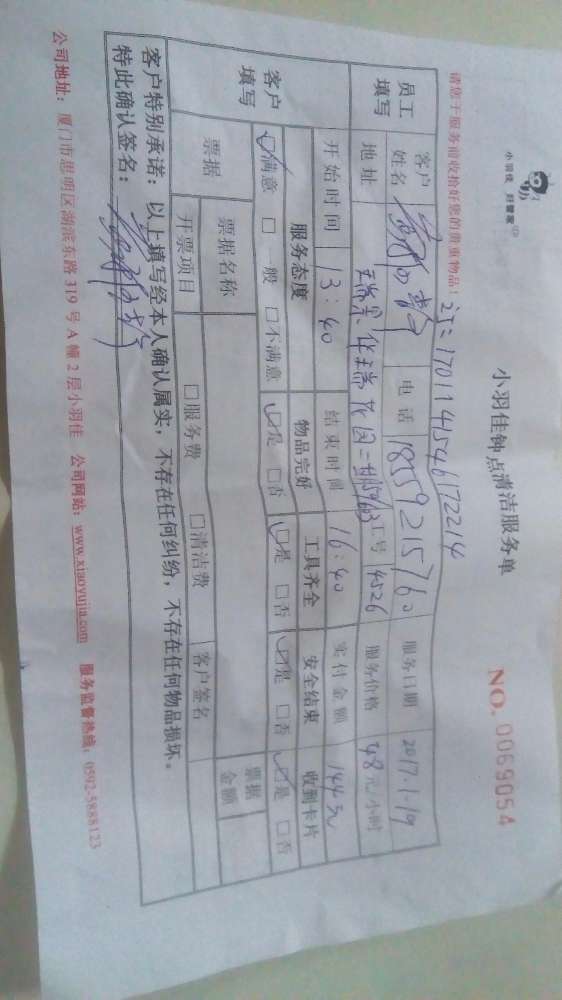 小羽佳 好管家
小羽佳钟点清洁服务单
NO. 0069054
请您于服务前收拾好您的贵重物品！
订:1701141546172214
员工填写 客户姓名 电话 18559215760 服务日期 2017.1.19
地址 瑞景 工号 4526 服务价格 48元/小时
开始时间 13:40 结束时间 16:40 实付金额 144元
客户填写 服务态度 物品完好 工具齐全 安全结束 收到卡片
☑满意 □一般 □不满意 ☑是 □否 ☑是 □否 ☑是 □否 ☑是 □否
票据 票据名称 票据金额
开票项目 □服务费 □清洁费 客户签名
客户特别承诺：以上填写经本人确认属实，不存在任何纠纷，不存在任何物品损坏。
特此确认签名：
公司地址：厦门市思明区湖滨东路 319 号 A 幢 2 层小羽佳 公司网站：www.xiaoyujia.com 服务监督热线：0592-5888123